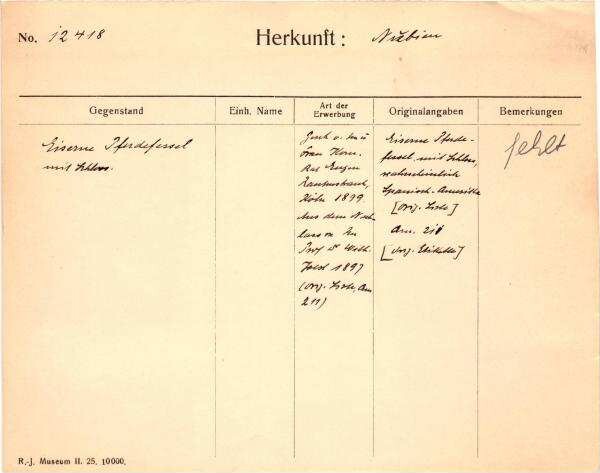 No. 12418
Herkunft: Nubien
Gegenstand
Einh. Name
Art der
Erwerbung
Originalangaben
Bemerkungen
Eiserne Pferdefessel
mit Schloss.
Gesch. v. Hn u
Frau Kom.
Rat Eugen
Rautenstrauch,
Köln 1899
Aus dem Nach-
lass von Hn
Prof Dr Wilh.
Joest 1897
(orig. Liste, Am
211)
Eiserne Pferde-
fessel mit Schloss,
wahrscheinlich
Spanisch-Amerika
[orig. Liste]
Am. 211
[orig. Etikette]
fehlt
R.-J. Museum II. 25. 10000.